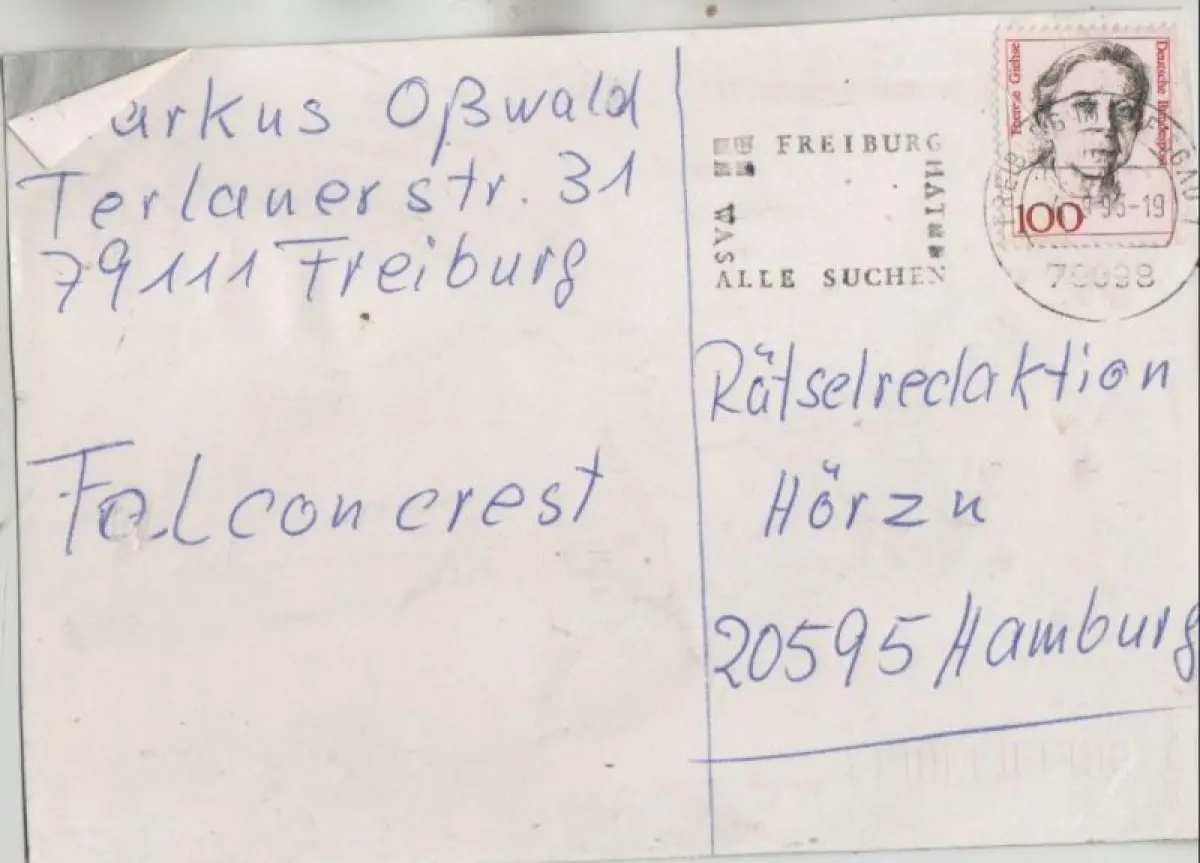 arkus Oßwald
Terlanerstr. 31
79111 Freiburg
Falconcrest
FREIBURG
HAT
WAS
ALLE SUCHEN
Therese Giehse
Deutsche Bundespost
100
-19
Rätselredaktion
Hörzu
20595 Hamburg